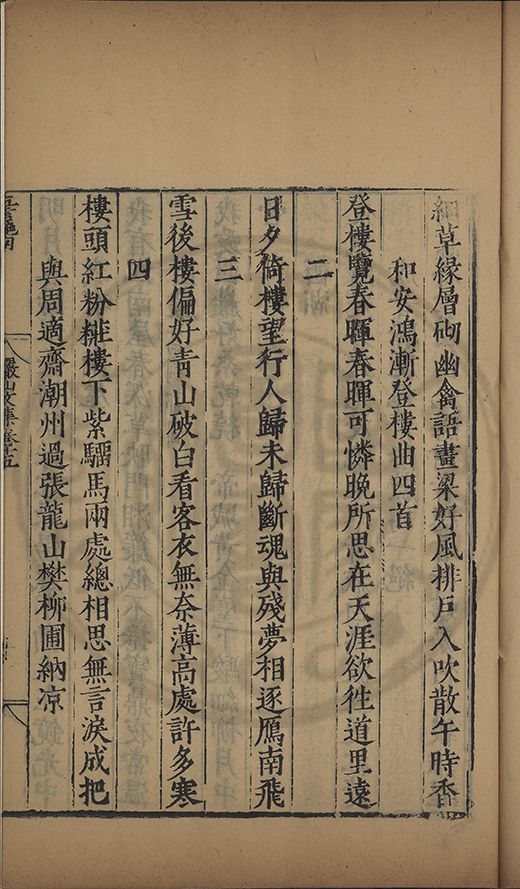 細草緣層砌幽禽語畫梁好風排戶入吹散午時香
和安鴻漸登樓曲四首
登樓覽春暉春暉可憐晚所思在天涯欲徃道里遠
二
日夕倚樓望行人歸未歸斷魂與殘夢相逐鴈南飛
三
雪後樓偏好青山破白看客衣無奈薄高處許多寒
四
樓頭紅粉糚樓下紫騮馬兩處總相思無言淚成把
與周適齋潮州過張龍山樊柳圃納凉
儼山文集卷十五